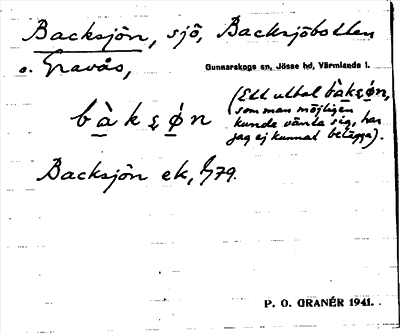 Backsjön, sjö, Backsjöbotten
o. Gravås,
Gunnarskogs sn, Jösse hd, Värmlands l.
bàkʂǿn
(Ett uttal bàkʂøn,
som man möjligen
kunde vänta sig, har
jag ej kunnat belägga).
Backsjön ek, G79.
P. O. GRANÉR 1941.